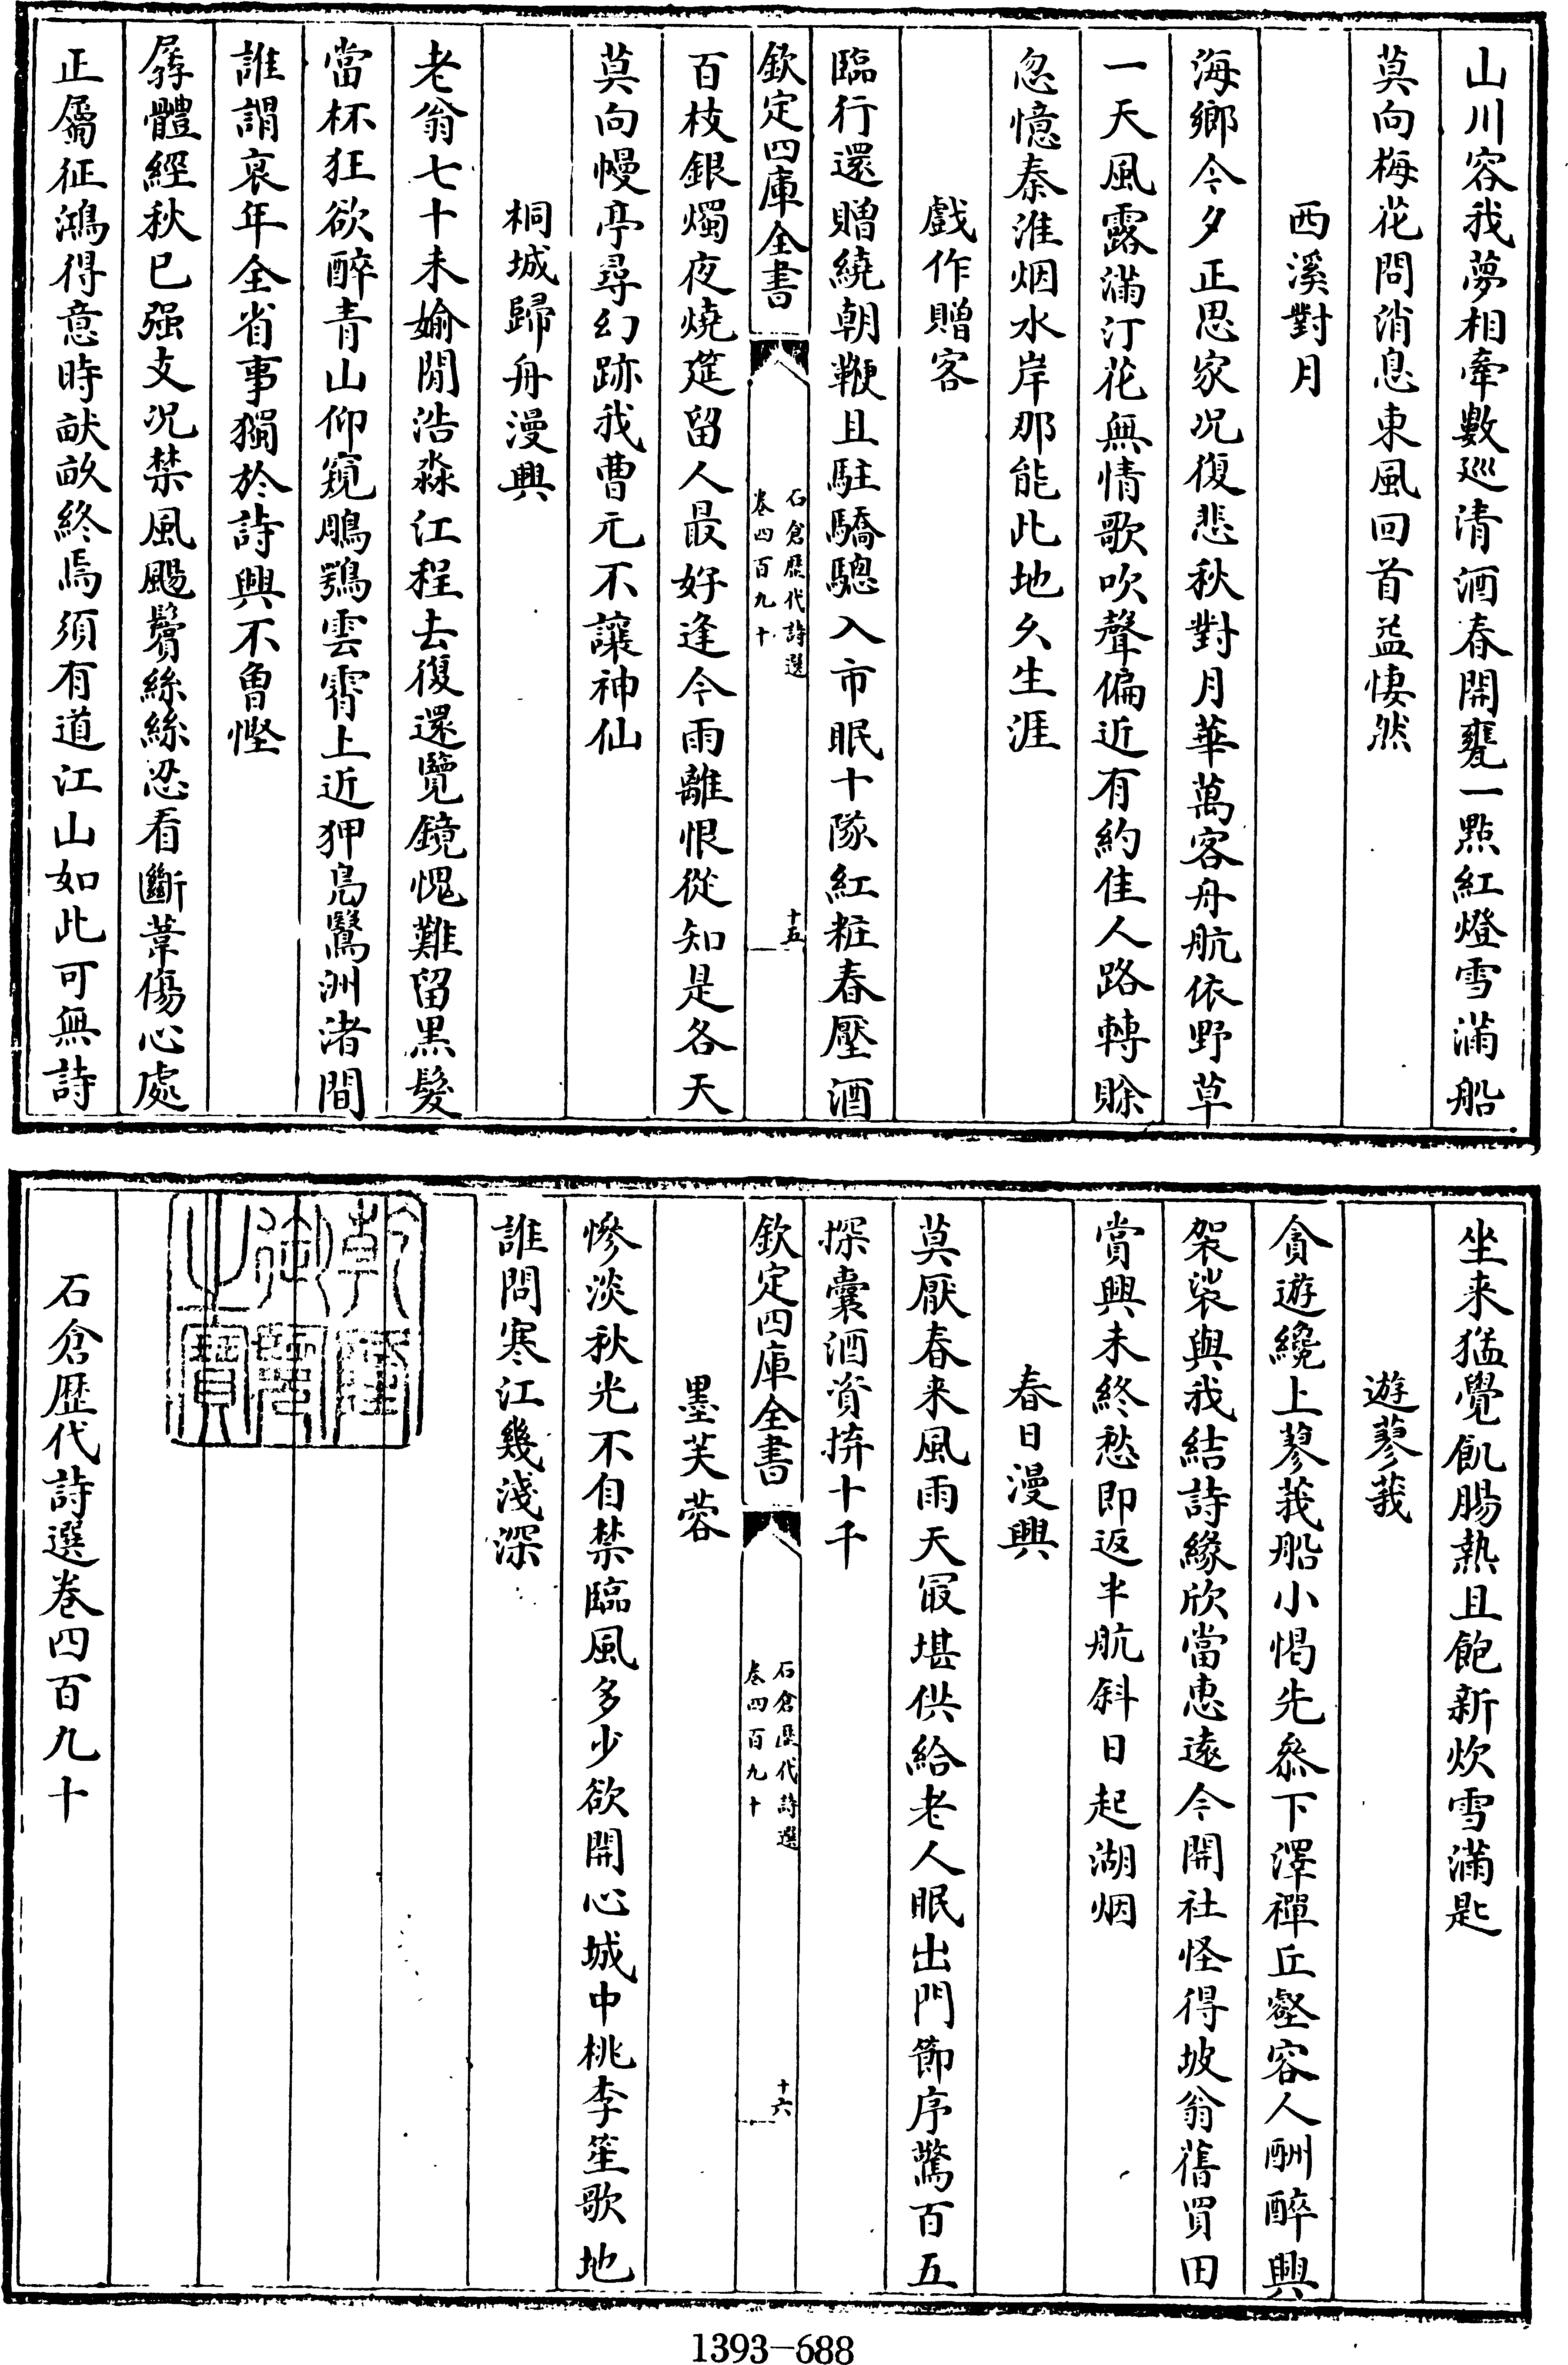 山川容我夢相牽數巡清酒春開甕一點紅燈雪滿船
莫向梅花問消息東風回首益悽然
西溪對月
海鄉今夕正思家况復悲秋對月華萬客舟航依野草
一天風露滿汀花無情歌吹聲偏近有約佳人路轉賒
忽憶秦淮烟水岸那能此地久生涯
戲作贈客
臨行還贈繞朝鞭且駐驕驄入市眠十隊紅粧春壓酒
欽定四庫全書
石倉歷代詩選
卷四百九十
十五
百枝銀燭夜燒筵留人最好逢今雨離恨從知是各天
莫向幔亭尋幻跡我曹元不讓神仙
桐城歸舟漫興
老翁七十未媮閒浩淼江程去復還覽鏡愧難留黒髮
當杯狂欲醉青山仰窺鵰鶚雲霄上近狎鳧鷖洲渚間
誰謂衰年全省事獨於詩興不曾慳
孱體經秋已强支况禁風颺鬢絲絲忍看斷葦傷心處
正屬征鴻得意時畎畝終焉須有道江山如此可無詩
坐来猛覺飢腸熱且飽新炊雪滿匙
遊蓼莪
貪遊纔上蓼莪船小憩先叅下澤禪丘壑容人酬醉興
袈裟與我結詩緣欣當恵逺今開社怪得坡翁舊買田
賞興未終愁即返半航斜日起湖烟
春日漫興
莫厭春来風雨天冣堪供給老人眠出門節序驚百五
探囊酒資拚十千
欽定四庫全書
石倉歷代詩選
卷四百九十
十六
墨芙蓉
慘淡秋光不自禁臨風多少欲開心城中桃李笙歌地
誰問寒江幾淺深
乾隆御覽之寶
石倉歷代詩選卷四百九十
1393-688